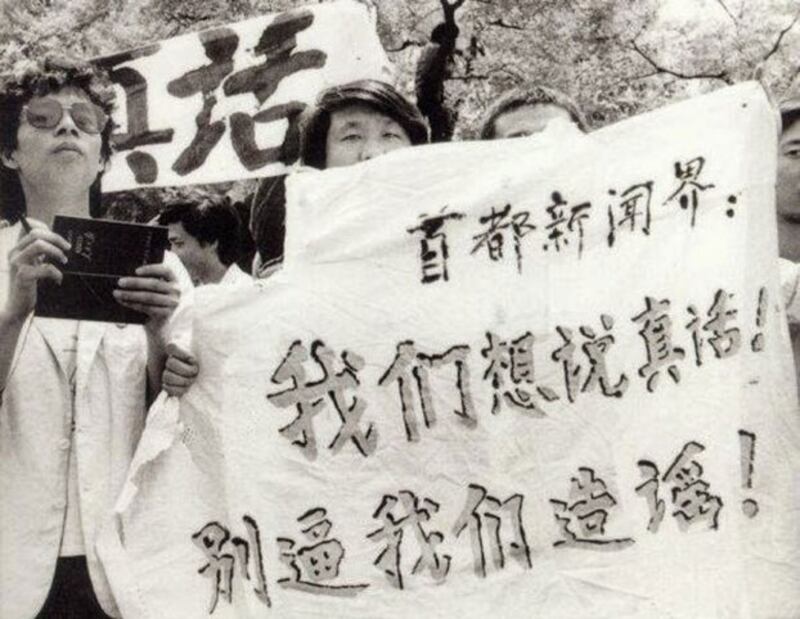 真话
首都新闻界：
我们想说真话！
别逼我们造谣！